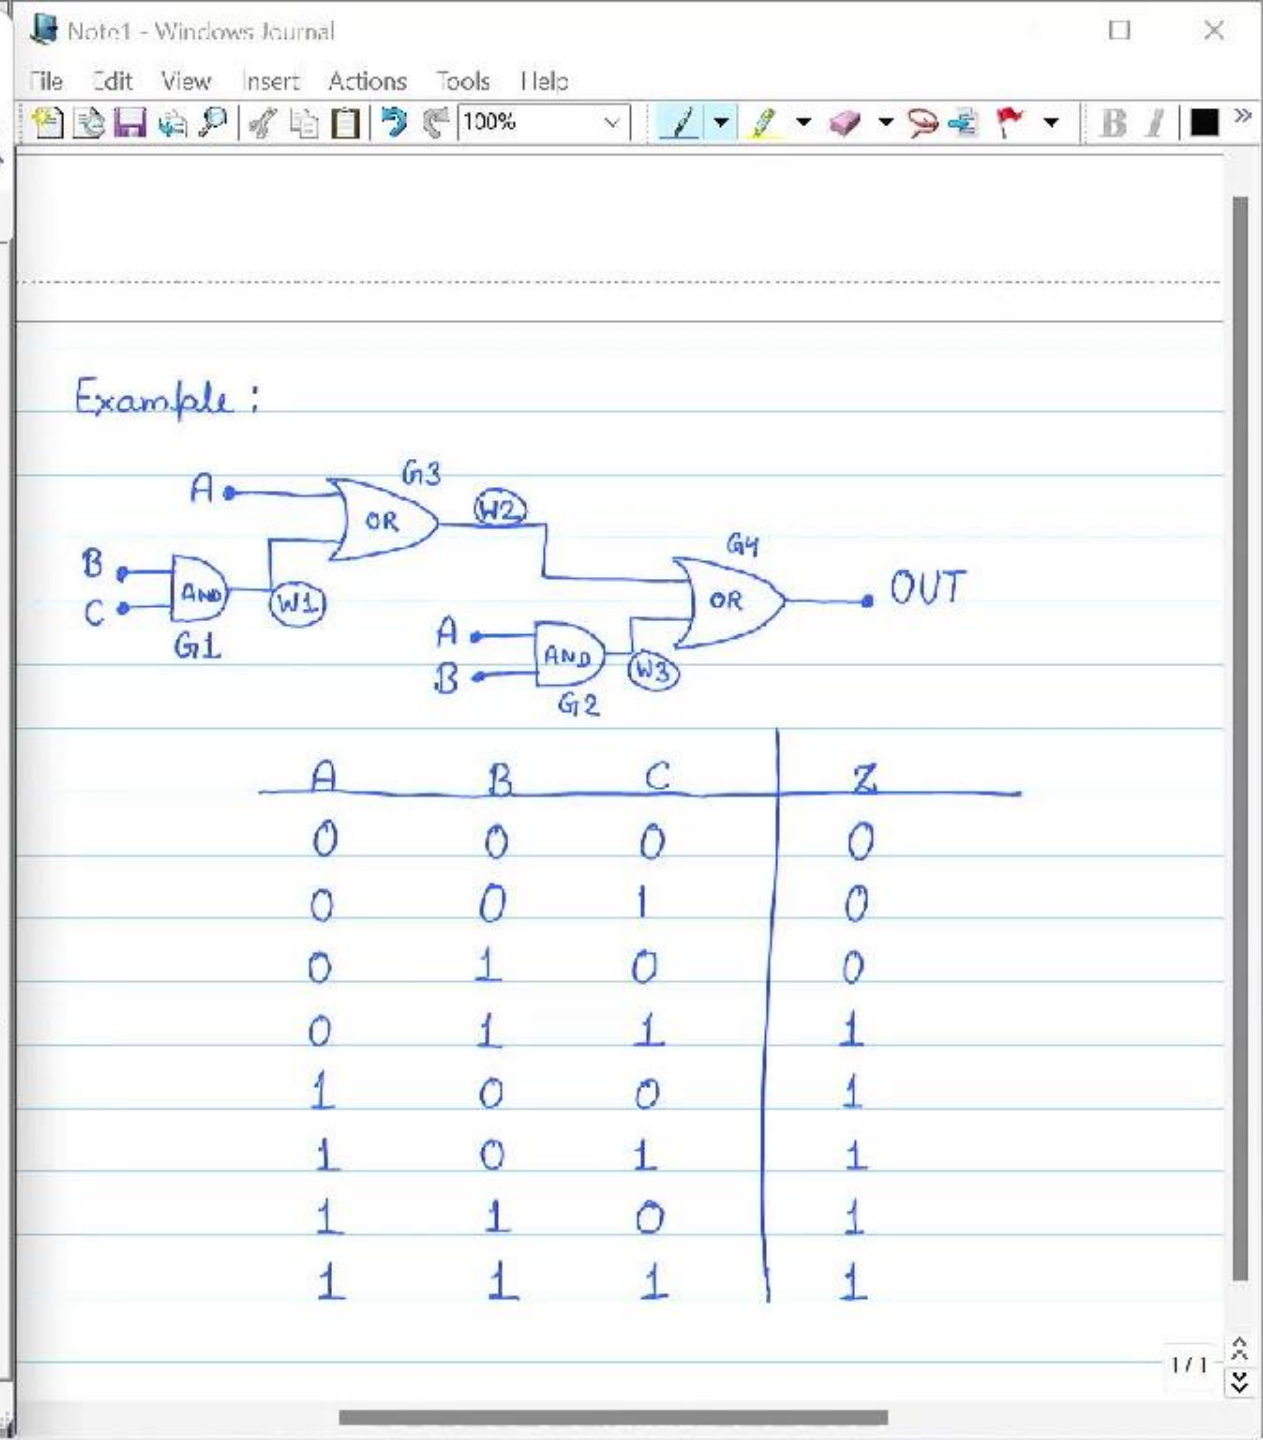 Note1 - Windows Journal
File Edit View Insert Actions Tools Help
100% B I
Example :
A G3
OR W2
B AND W1
C G1
G4
OR OUT
A AND W3
B G2
A B C Z
0 0 0 0
0 0 1 0
0 1 0 0
0 1 1 1
1 0 0 1
1 0 1 1
1 1 0 1
1 1 1 1
1 / 1